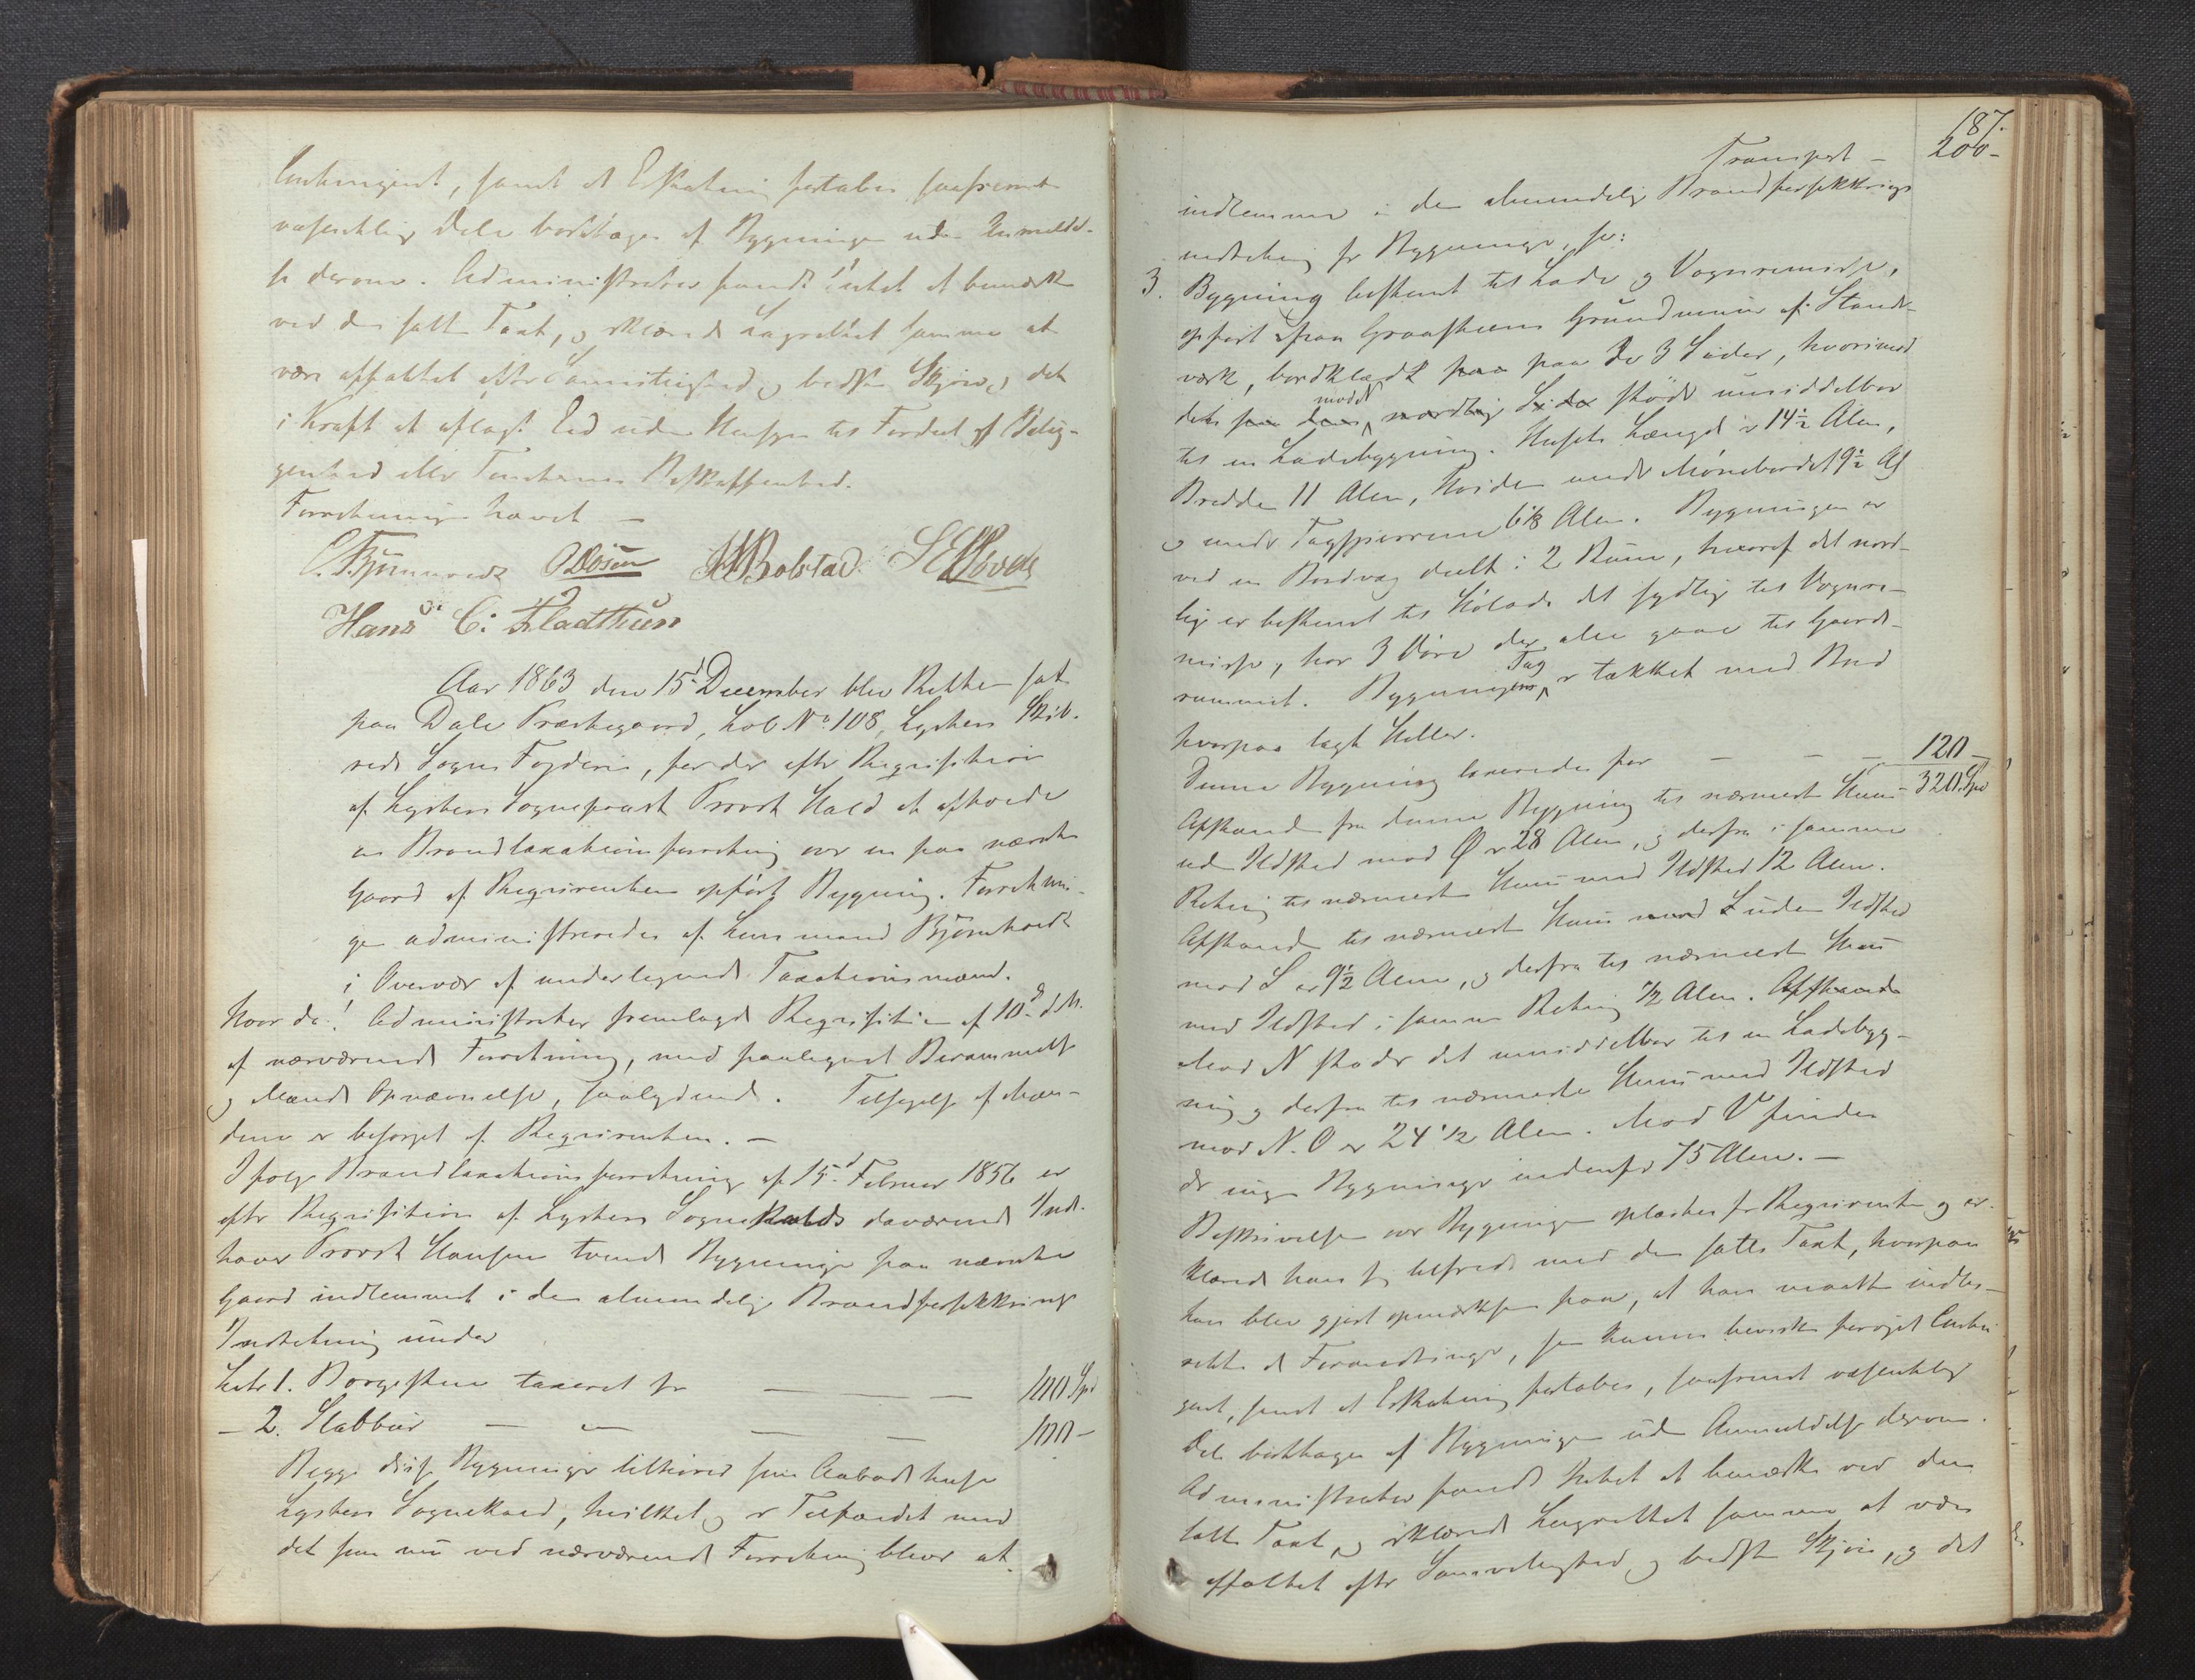 Contingent, samt at Erstatning fortabes saafremt
væsentlige Dele borttages af Bygningen uden Anmeldel-
se derom. Administrator fandt Intet at bemærke
ved den satte Taxt, og erklærede Lagrettet samme at
være affattet efter Samvittighed og bedste Skjøn, og det
i Kraft af aflagt Ed uden Hensyn til Fordeel af Belig-
genhed eller Tomternes Beskaffenhed.
Forretningen hævet —
Hans C: Fladthun
Aar 1863 den 15d December blev Retten sat
paa Dale Præstegaard, Løb No 108, Lysters Skib-
rede Sogns Fogderi, for der efter Requisition
af Lysters Sognepræst Provst Hald at afholde
en Brandtaxationsforretning over en paa nævnte
Gaard af Requirenten opført Bygning. Forretnin-
gen administreredes af Lensmand
i Overvær af undertegnede Taxationsmænd.
Hvor da! Administrator fremlagde Requisition af 10d ds.
af nærværende Forretning, med paategnet Berammelse
og Mænds Opnævnelse, saalydende. Tilsigelse af Mæn-
dene er besørget af Requirenten. —
Ifølge Brandtaxationsforretning af 15d Februar 1856 er
efter Requisition af Lysters Sognekalds daværende Inde-
haver Provst Hansen tvende Bygninger paa nævnte
Gaard indlemmet i den almindelige Brandforsikkrings
Indretning under
Litr 1. Borgestue taxeret for — — — 100 Spd
— 2. Stabbur — — — — 100 —
Begge disse Bygninger tilhører som Aabodshuse
Lysters Sognekald, hvilket og er Tilfældet med
det som nu ved nærværende Forretning bliver at
187.
Transport — 200 —
indlemme i den almindelige Brandforsikkrings
indretning for Bygninger, som:
3. Bygning bestemt til Lade og Vognremise,
opført paa Graasteens Grundmuur af Stand-
værk, bordklædt paa paa de 3 Sider, hvorimod
det paa den mod nordlige Side støder umiddelbar
til en Ladebygning. Husets Længde er 14½ Alen,
Bredde 11 Alen, Høiden under Mønebordet 9½ Al
og under Tagsperrerne 6⅛ Alen. Bygningen er
ved en Bordvæg deelt i 2 Rum, hvoraf det nord-
lige er bestemt til Hølade det sydlige til Vognre-
misse, har 3 Døre der alle gaae til Gaards-
rummet. Bygningens Tag er tækket med Bord
hvorpaa lagt Heller.
Denne Bygning taxeredes for — — — 120 —
320 Spd
Afstand fra denne Bygning til nærmeste Huus
uden Ildsted mod Ø er 28 Alen, og derfra i samme
Retning til nærmeste Huus med Ildsted 12 Alen.
Afstand til nærmeste Huus mod S uden Ildsted
mod S er 9½ Alen, og derfra til nærmeste Huus
med Ildsted i samme Retning ½ Alen. Afstand
Mod N støder det umiddelbar til en Ladebyg-
ning og derfra til nærmeste Huus med Ildsted
mod N.O er 24½ Alen. Mod V findes
der ingen Bygninger indenfor 75 Alen. —
Beskrivelsen over Bygningen oplæstes for Requirenten og er-
klærede han sig tilfreds med den satte Taxt, hvorpaa
han blev gjort opmærksom paa, at han maatte indbe-
rette de Forandringer, som kunne bevirke forøget Contin
gent, samt at Erstatning fortabes, saafremt væsentlige
Dele borttages af Bygningen uden Anmeldelse derom.
Administrator fandt Intet at bemærke ved den
satte Taxt, og erklærede Lagrettet samme at være
affattet efter Samvittighed og bedste Skjøn, og det